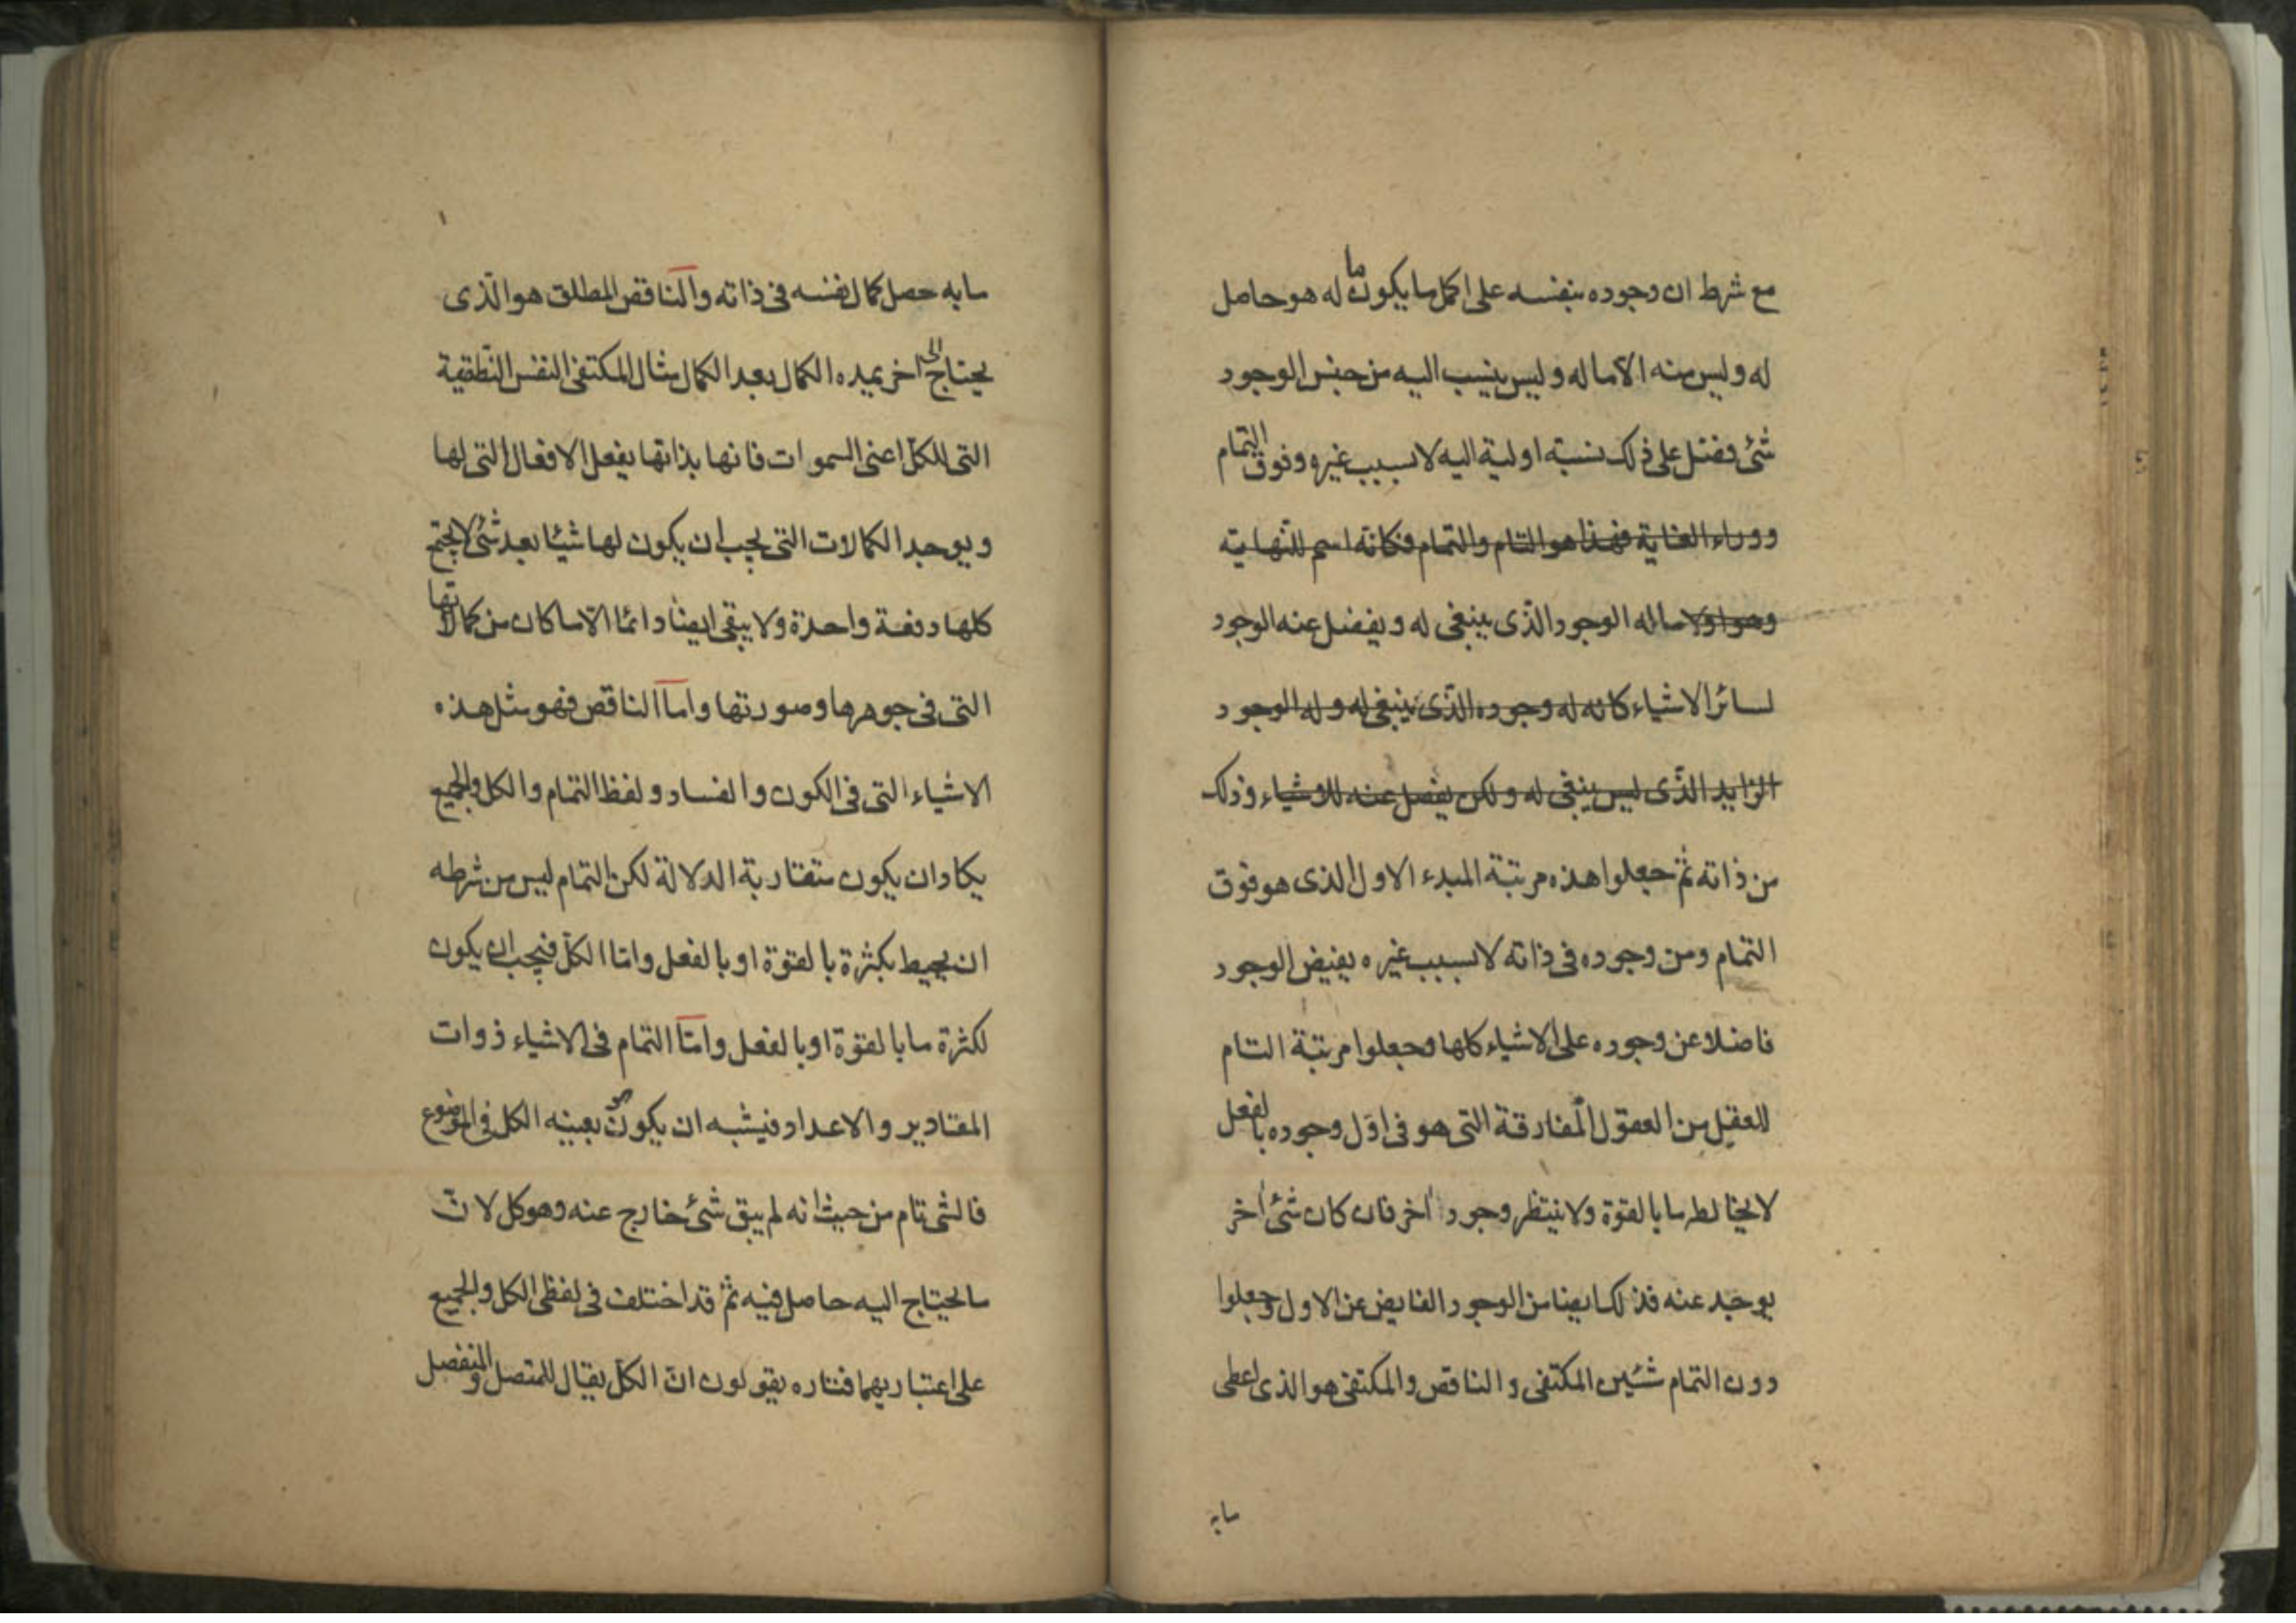 مع شرط ان وجوده بنفسه على اكمل ما يكون ما له هو حاصل
له وليس منه الا ما له وليس ينسب اليه من جنس الوجود
شئ فضل على ذلك نسبة اولية اليه لا بسبب غيره وفوق التمام
ووراء الغاية فهذا هو التام والتمام فكانه اسم للنهاية
وهو اولا ما له الوجود الذى ينبغى له ويفضل عنه الوجود
لسائر الاشياء كانه له وجوده الذى ينبغى له وله الوجود
الزايد الذى ليس ينبغى له ولكن يفضل عنه للاشياء وذلك
من ذاته ثم جعلوا هذه مرتبة المبدء الاول الذى هو فوق
التمام ومن وجوده فى ذاته لا بسبب غيره يفيض الوجود
فاضلا عن وجوده على الاشياء كلها وجعلوا مرتبة التام
للعقل من العقول المفارقة التى هو فى اول وجوده بالفعل
لا يخالطه ما بالقوة ولا ينتظر وجودا اخر فان كان شئ اخر
يوجد عنه فذلك ايضا من الوجود الفايض عن الاول وجعلوا
دون التمام شئين المكتفى والناقص والمكتفى هو الذى اعطى
ما به
ما به حصل كمال نفسه فى ذاته والناقص المطلق هو الذى
يحتاج الى اخر يمده الكمال بعد الكمال مثال المكتفى النفس النطقية
التى للكل اعنى السموات فانها بذاتها يفعل الافعال التى لها
ويوجد الكمالات التى يجب ان يكون لها شيئا بعد شئ لا يجتمع
كلها دفعة واحدة ولا يبقى ايضا دائما الا ما كان من كمالاتها
التى فى جوهرها وصورتها واما الناقص فهو مثل هذه
الاشياء التى فى الكون والفساد ولفظ التمام والكل والجميع
يكاد ان يكون متقاربة الدلالة لكن التمام ليس من شرطه
ان يحيط بكثرة بالقوة او بالفعل واما الكل فيجب ان يكون
لكثرة ما بالقوة او بالفعل واما التمام فى الاشياء ذوات
المقادير والاعداد فيشبه ان يكون هو بعينه الكل فى الموضوع
فالشئ تام من حيث انه لم يبق شئ خارج عنه وهو كل لان
ما يحتاج اليه حاصل فيه ثم قد اختلف فى لفظى الكل والجميع
على اعتباريهما فتاره يقولون ان الكل يقال للمتصل والمنفصل